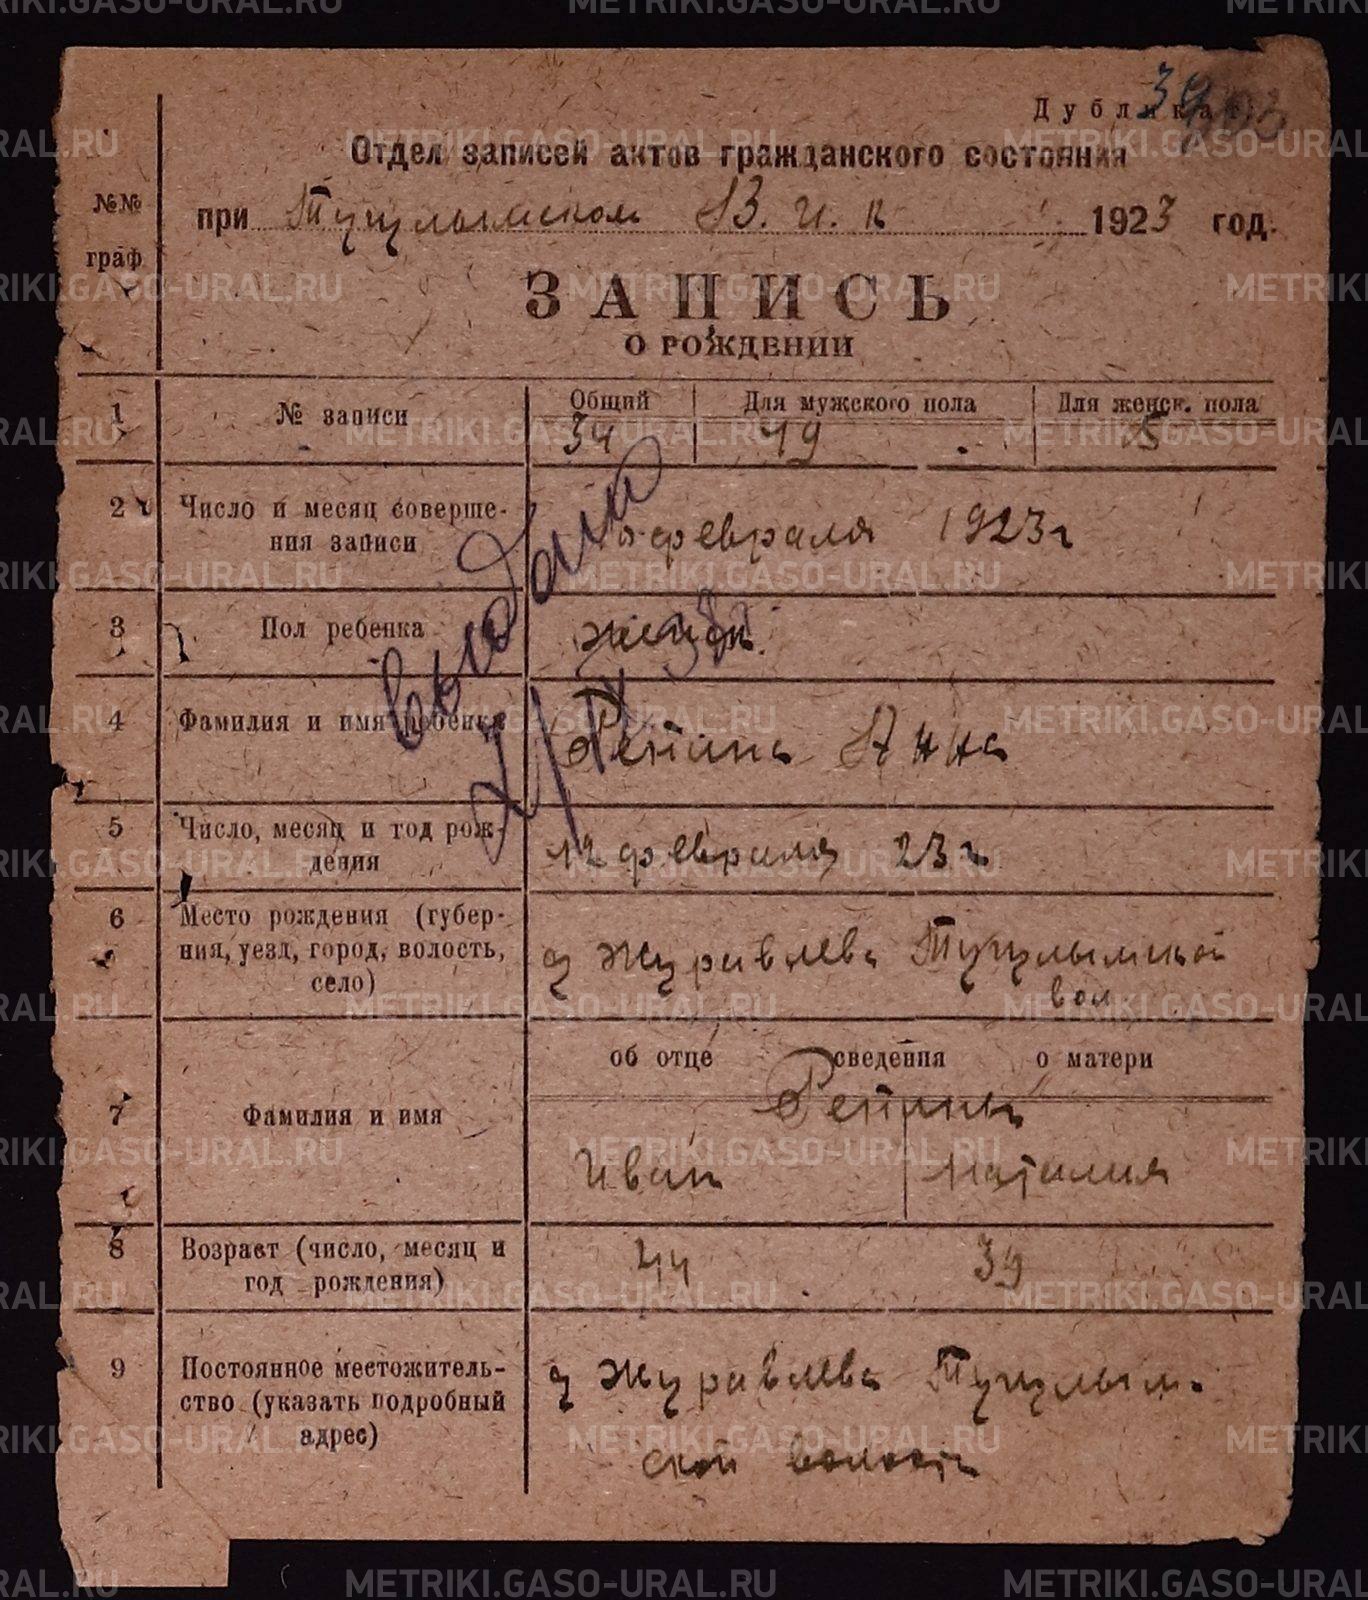 Дубликат
39
Отдел записей актов гражданского состояния
№№ граф
при Тугулымском В. И. К 1923 год.
ЗАПИСЬ
О РОЖДЕНИИ
1 № записи Общий Для мужского пола Для женск. пола
34 19 15
2 Число и месяц соверше-
ния записи
февраля 1923г
3 Пол ребенка
женск.
4 Фамилия и имя ребенка
Репина Анна
5 Число, месяц и год рож-
дения
12 февраля 23г
6 Место рождения (губер-
ния, уезд, город, волость,
село)
д Журавлева Тугулымской
вол
об отце сведения о матери
7 Фамилия и имя
Репины
Иван Наталия
8 Возраст (число, месяц и
год рождения)
44 39
9 Постоянное местожитель-
ство (указать подробный
адрес)
д Журавлева Тугулым-
ской волости
METRIKI.GASO-URAL.RU